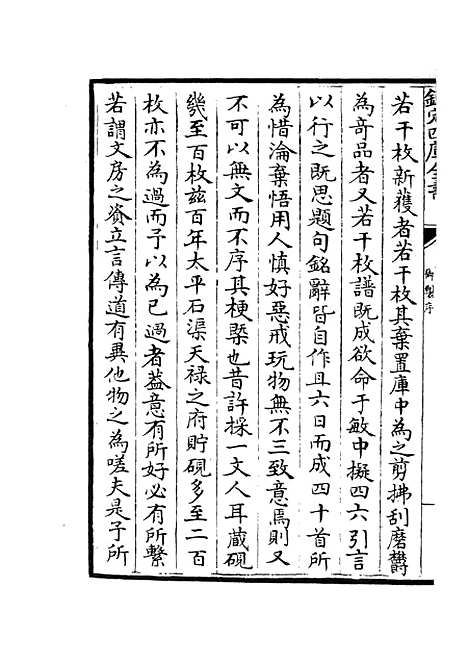 欽定四庫全書
御製序
若干枚新獲者若干枚其棄置庫中為之剪拂刮磨欝
為竒品者又若干枚譜既成欲命于敏中擬四六引言
以行之既思題句銘辭皆自作且六日而成四十首所
為惜淪棄悟用人慎好惡戒玩物無不三致意焉則又
不可以無文而不序其梗槩也昔許採一文人耳蔵硯
幾至百枚兹百年太平石渠天禄之府貯硯多至二百
枚亦不為過而予以為已過者葢意有所好必有所繫
若謂文房之資立言傳道有異他物之為嗟夫是予所